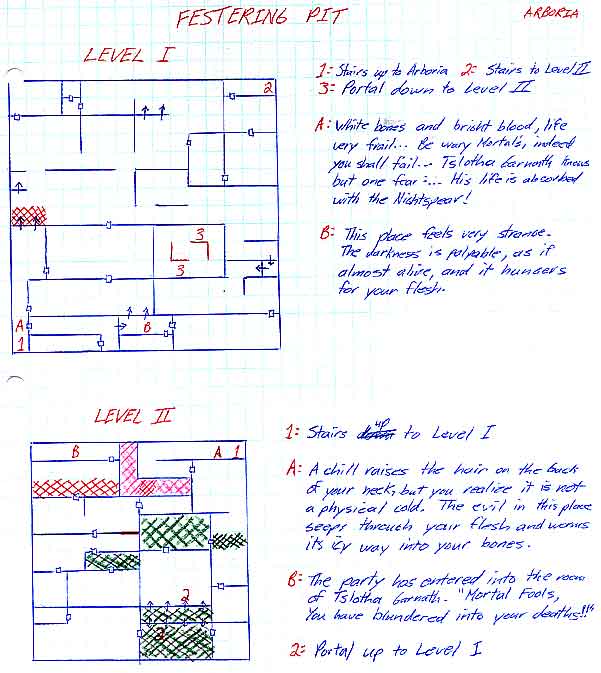 FESTERING PIT
ARBORIA
LEVEL I
1= Stairs up to Arboria 2= Stairs to Level II
3= Portal down to Level II
A: White bones and bright blood, life
very frail... Be wary Mortal's, indeed
you shall fail... Tslotha Garnath knows
but one fear:... His life is absorbed
with the Nightspear!
B: This place feels very strange.
The darkness is palpable, as if
almost alive, and it hungers
for your flesh.
2
3
3
A
1
B
LEVEL II
1: Stairs up to Level I
A: A chill raises the hair on the back
of your neck, but you realize it is not
a physical cold. The evil in this place
seeps through your flesh and worms
its icy way into your bones.
B: The party has entered into the room
of Tslotha Garnath. "Mortal Fools,
You have blundered into your deaths!!"
2: Portal up to Level I
B
A 1
2
2